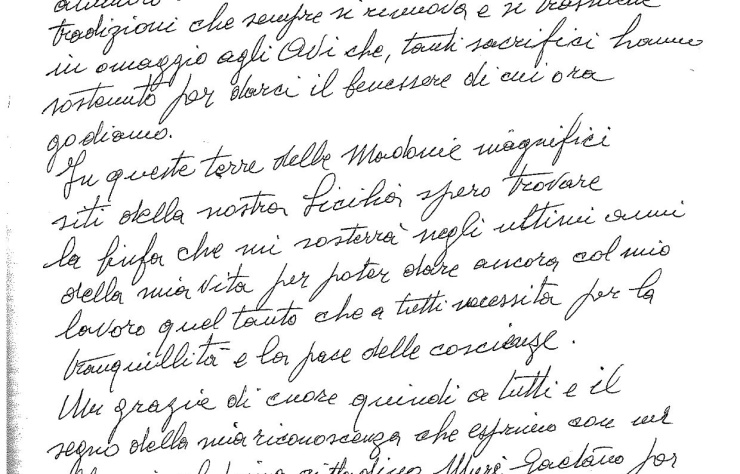 tradizioni che sempre si rinnova e si trasmette
in omaggio agli Avi che, tanti sacrifici hanno
sostenuto per darci il benessere di cui ora
godiamo.
In queste terre delle Madonie magnifici
siti della nostra Sicilia spero trovare
la linfa che mi sosterrà negli ultimi anni
della mia vita per poter dare ancora col mio
lavoro quel tanto che a tutti necessita per la
tranquillità e la pase delle coscienze.
Un grazie di cuore quindi a tutti e il
segno della mia riconoscenza che esprimo con un
cittadino Gaetano per